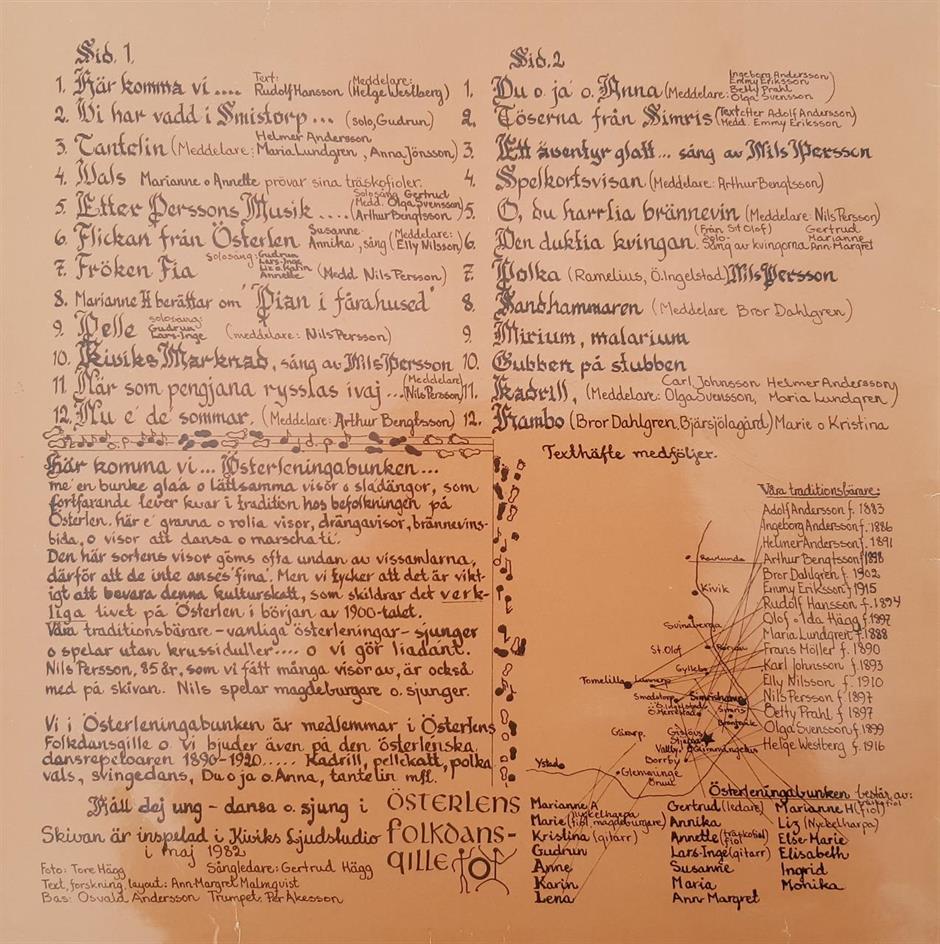 Sid. 1.
1. Här komma vi .... Text: Rudolf Hansson (Meddelare: Helge Westberg)
2. Vi har vadd i Smistorp... (solo, Gudrun)
3. Tantelin (Meddelare: Helmer Andersson Maria Lundgren, Anna Jönsson)
4. Vals Marianne o Annette prövar sina träskofioler.
5. Etter Perssons Musik .... Solosång Gertrud (Medd. Olga Svensson) (Arthur Bengtsson)
6. Flickan från Österlen Susanne Annika, sång (Medd. Elly Nilsson)
7. Fröken Fia Solosång: Gudrun Lars-Inge Liz o Karin Annette (Medd Nils Persson)
8. Marianne H berättar om "Pian i fårahused"
9. Pelle solosång: Gudrun Lars-Inge (meddelare: Nils Persson)
10. Kiviks Marknad, sång av Nils Persson
11. När som pengjana rysslas ivaj ... (Meddelare) Nils Persson)
12. Nu e' de' sommar. (Meddelare: Arthur Bengtsson)
Sid. 2
1. Du o. ja' o. Anna (Meddelare: Ingeborg Andersson Emmy Eriksson Betty Prahl Olga Svensson)
2. Töserna från Simris (Text Etter Adolf Andersson) Medd. Emmy Eriksson
3. Ett äventyr glatt... sång av Nils Persson
4. Spelkortsvisan (Meddelare: Arthur Bengtsson)
5. O, du harrlia brännevin (Meddelare: Nils Persson)
6. Den duktia kvingan. (Från St Olof) Solo- Gertrud Marianne Sång av kvingorna Ann-Margret
7. Polka (Ramelius, Ö. Ingelstad) Nils Persson
8. Sandhammaren (Meddelare Bror Dahlgren)
9. Mirium, malarium
10. Gubben på stubben
11. Kadrill, (Meddelare: Carl Johnsson Helmer Andersson Olga Svensson, Maria Lundgren)
12. Hambo (Bror Dahlgren, Bjärsjölagård) Marie o Kristina
Texthäfte medföljer.
Här komma vi... Österleningabunken...
me' en bunke glaa o lättsamma visor o sladängor, som
fortfarande lever kvar i tradition hos befolkningen på
Österlen. här e' granna o rolia visor, drängavisor, brännevins-
bida, o visor att dansa o marscha ti'.
Den här sortens visor göms ofta undan av vissamlarna,
därför att de inte anses 'fina'. Men vi tycker att det är vik-
tigt att bevara denna kulturskatt, som skildrar det verk-
liga livet på Österlen i början av 1900-talet.
Våra traditionsbärare - vanliga österleningar - sjunger
o spelar utan krussiduller.... o vi gör liadant.
Nils Persson, 85 år, som vi fått många visor av, är också
med på skivan. Nils spelar magdeburgare o. sjunger.
Vi i Österleningabunken är medlemmar i Österlens
Folkdansgille o. vi bjuder även på den österlenska
dansrepetoaren 1890-1920..... Kadrill, pellekatt, polka
vals, svingedans, Du o ja o. Anna, tantelin mfl.
Håll dej ung - dansa o. sjung i
ÖSTERLENS
FOLKDANS-
GILLE
Skivan är inspelad i Kiviks Ljudstudio
i maj 1982
Foto: Tore Hägg Sångledare: Gertrud Hägg
Text, forskning, layout: Ann-Margret Malmqvist
Bas: Osvald Andersson Trumpet: Per Åkesson
Våra traditionsbärare:
Adolf Andersson f. 1883
Ingeborg Andersson f. 1886
Helmer Andersson f. 1891
Arthur Bengtsson f. 1898
Bror Dahlgren f. 1902
Emmy Eriksson f. 1915
Rudolf Hansson f. 1894
Olof o Ida Hägg f. 1897
Maria Lundgren f. 1888
Frans Möller f. 1890
Karl Johnsson f. 1893
Elly Nilsson f. 1910
Nils Persson f. 1897
Betty Prahl f. 1897
Olga Svensson f. 1899
Helge Westberg f. 1916
Ravlunda
Kivik
Svinaberga
St. Olof
Rörum
Gyllebo
Tomelilla
Lunnarp
Smedstorp
Simrishamn
Ö. Ingelstad
Ö. Herrestad
Simris
Brantevik
Gärarp
Gislöv
Stjerna
Vallby
Glimmingehus
Borrby
Ystad
Glemminge
Örum
Österleningabunken består av:
Marianne A nyckelharpa
Marie (fiol magdeburgare)
Kristina (gitarr)
Gudrun
Anne
Karin
Lena
Gertrud (ledare)
Annika
Annette (träskofiol) fiol
Lars-Inge (gitarr)
Susanne
Maria
Ann-Margret
Marianne H (träskofiol fiol
Liz (Nyckelharpa)
Else-Marie
Elisabeth
Ingrid
Monika